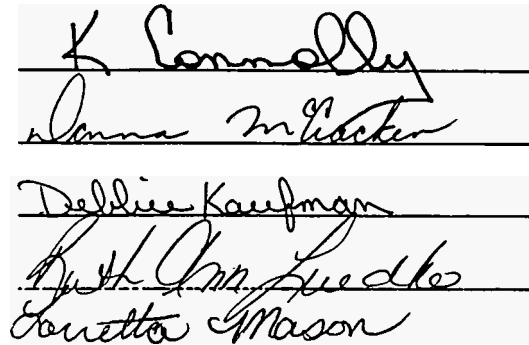 K Connolly
Donna McCracken
Debbie Kaufman
Ruth Ann Luedke
Loretta Mason